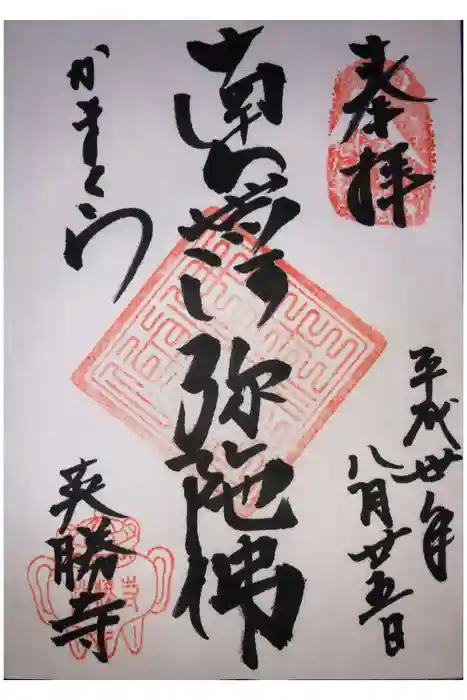 奉拝
平成丗年
八月廿五日
南無阿弥陀佛
かまくら
英勝寺